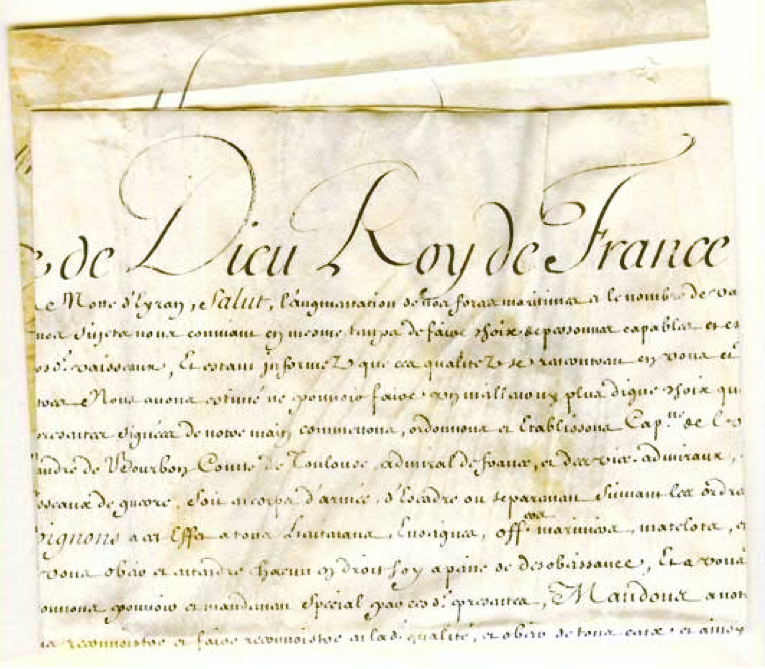 de Dieu Roy de France
Salut, l'augmentation de nos forces maritimes et le nombre de va
nos sujets nous conviant en mesme temps de faire choix de personnes capables et
vaisseaux, Et estant informez que ces qualitez se rencontrent en vous
Nous avons estimé ne pouvoir faire un meilleur ny plus digne choix que
presentes signées de notre main commettons, ordonnons et Etablissons Cap.ne de
andre de Bourbon Comte de Toulouse, admiral de france, et des vice-admiraux,
sseaux de guerre, Soit en corps d'armée, d'Escadre ou separement Suivant les ordre
oignons a cet Effet a tous Lieutenans, Enseignes, off.ers mariniers, matelots, e
vous obeir et entendre chacun en droit soy a peine de desobeissance, Et a vous
onnons pouvoir et mandement Special par ces d. presentes, Mandons a not
reconnoistre et faire reconnoistre en lad. qualité, et obeir de tous ceux et ainsy